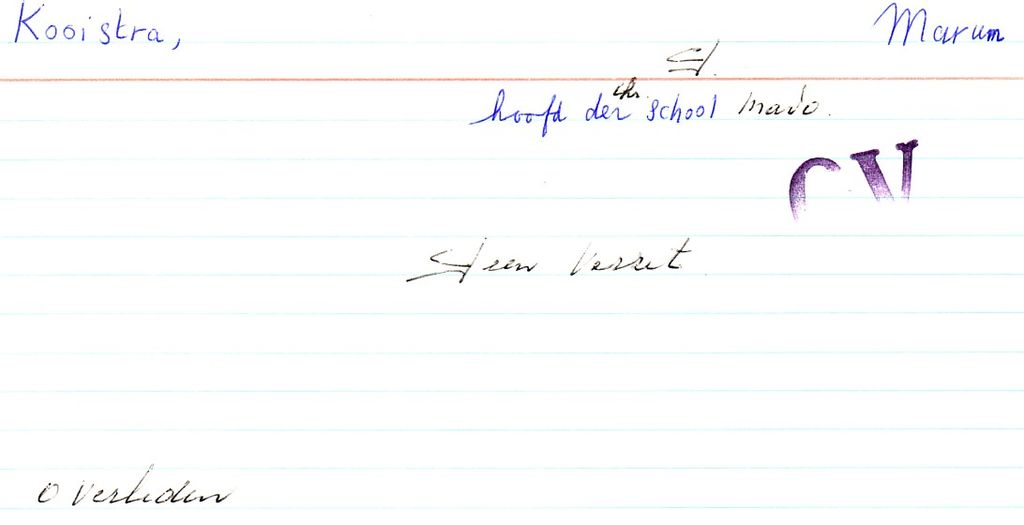 Kooistra, Marum
hoofd der chr. school mavo.
CV
geen verzet
overleden